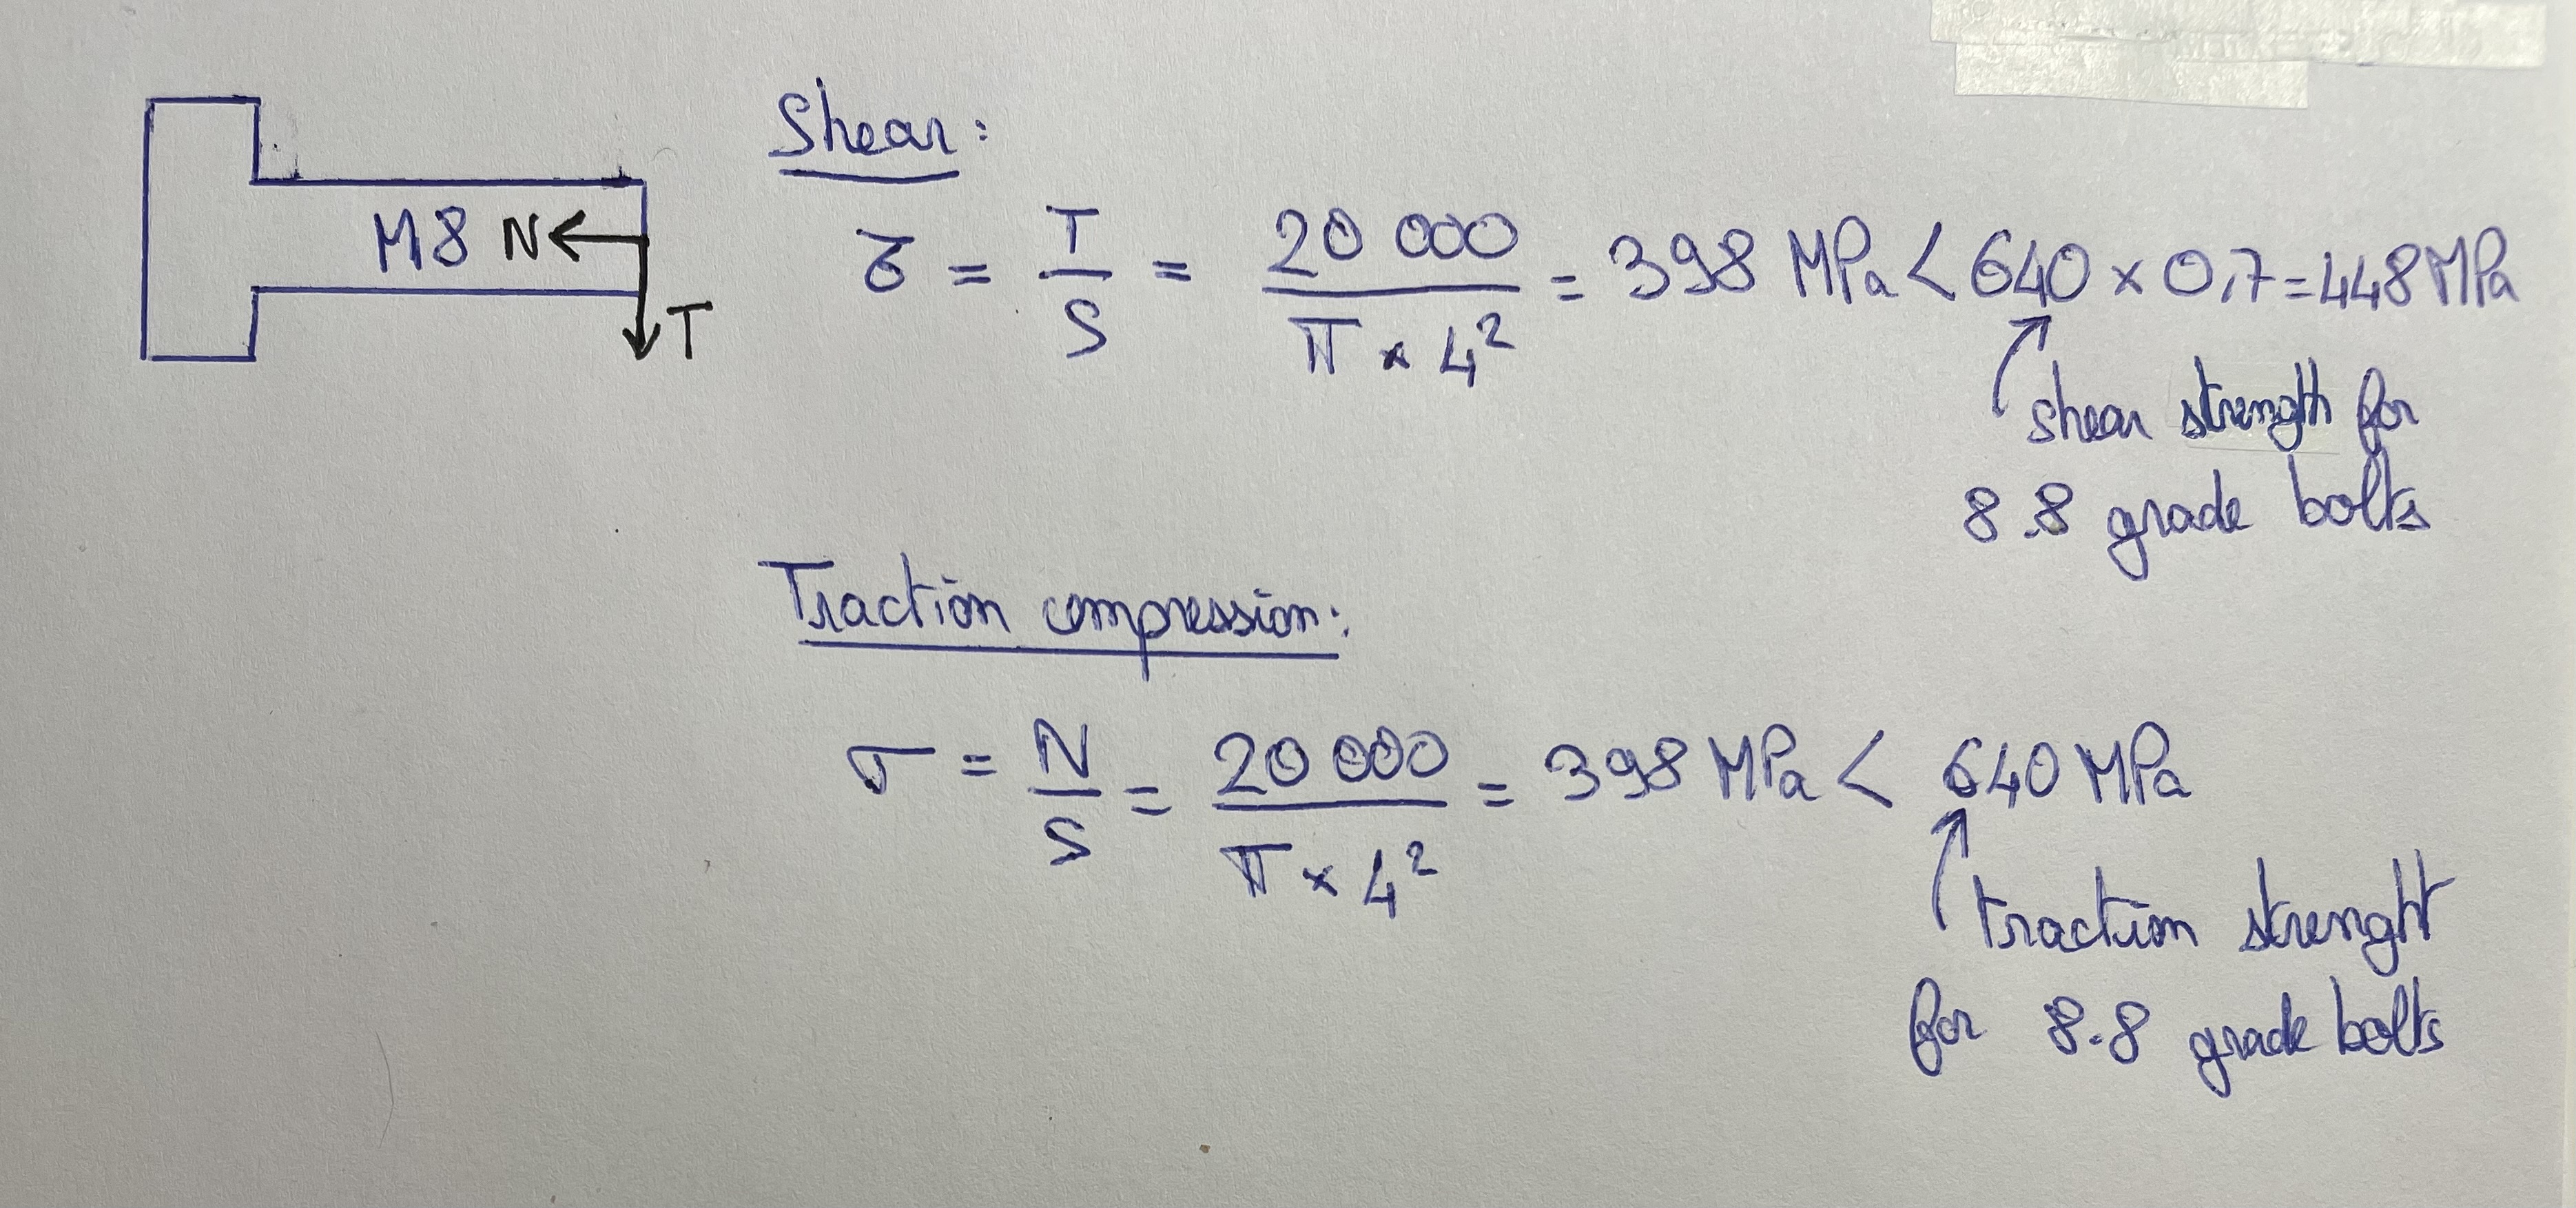 Shear:
M8 N
T
τ = T/S = 20 000/(π × 4²) = 398 MPa < 640 × 0,7 = 448 MPa
shear strength for
8.8 grade bolts
Traction compression:
σ = N/S = 20 000/(π × 4²) = 398 MPa < 640 MPa
traction strenght
for 8.8 grade bolts